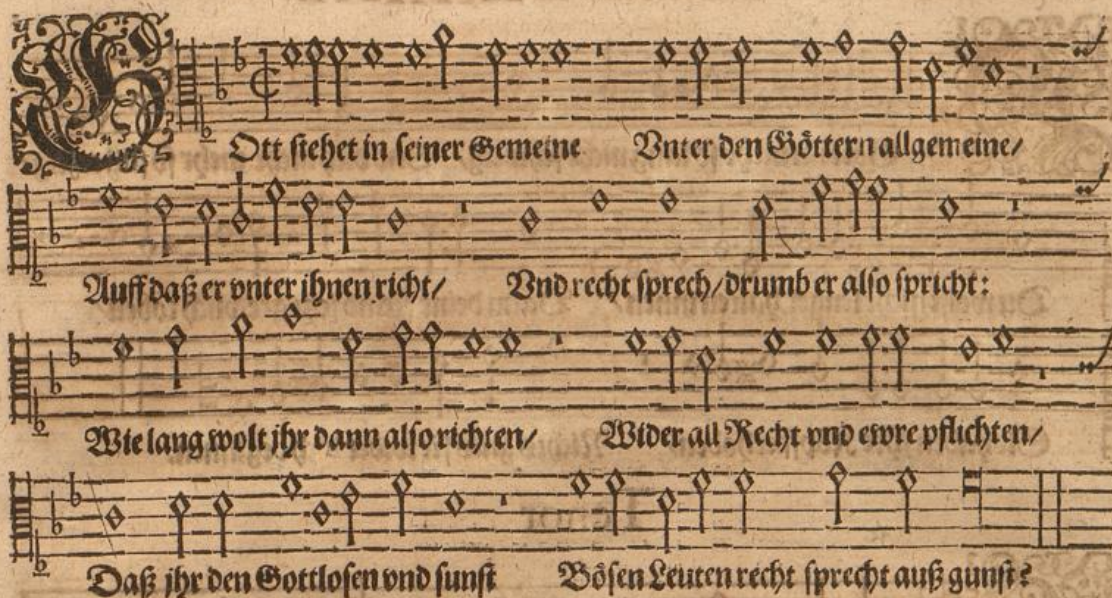 GOtt stehet in seiner Gemeine Vnter den Göttern allgemeine/
Auff daß er vnter jhnen richt/ Vnd recht sprech/ drumb er also spricht:
Wie lang wolt jhr dann also richten/ Wider all Recht vnd ewre pflichten/
Daß jhr den Gottlosen vnd sunst Bösen Leuten recht sprecht auß gunst?